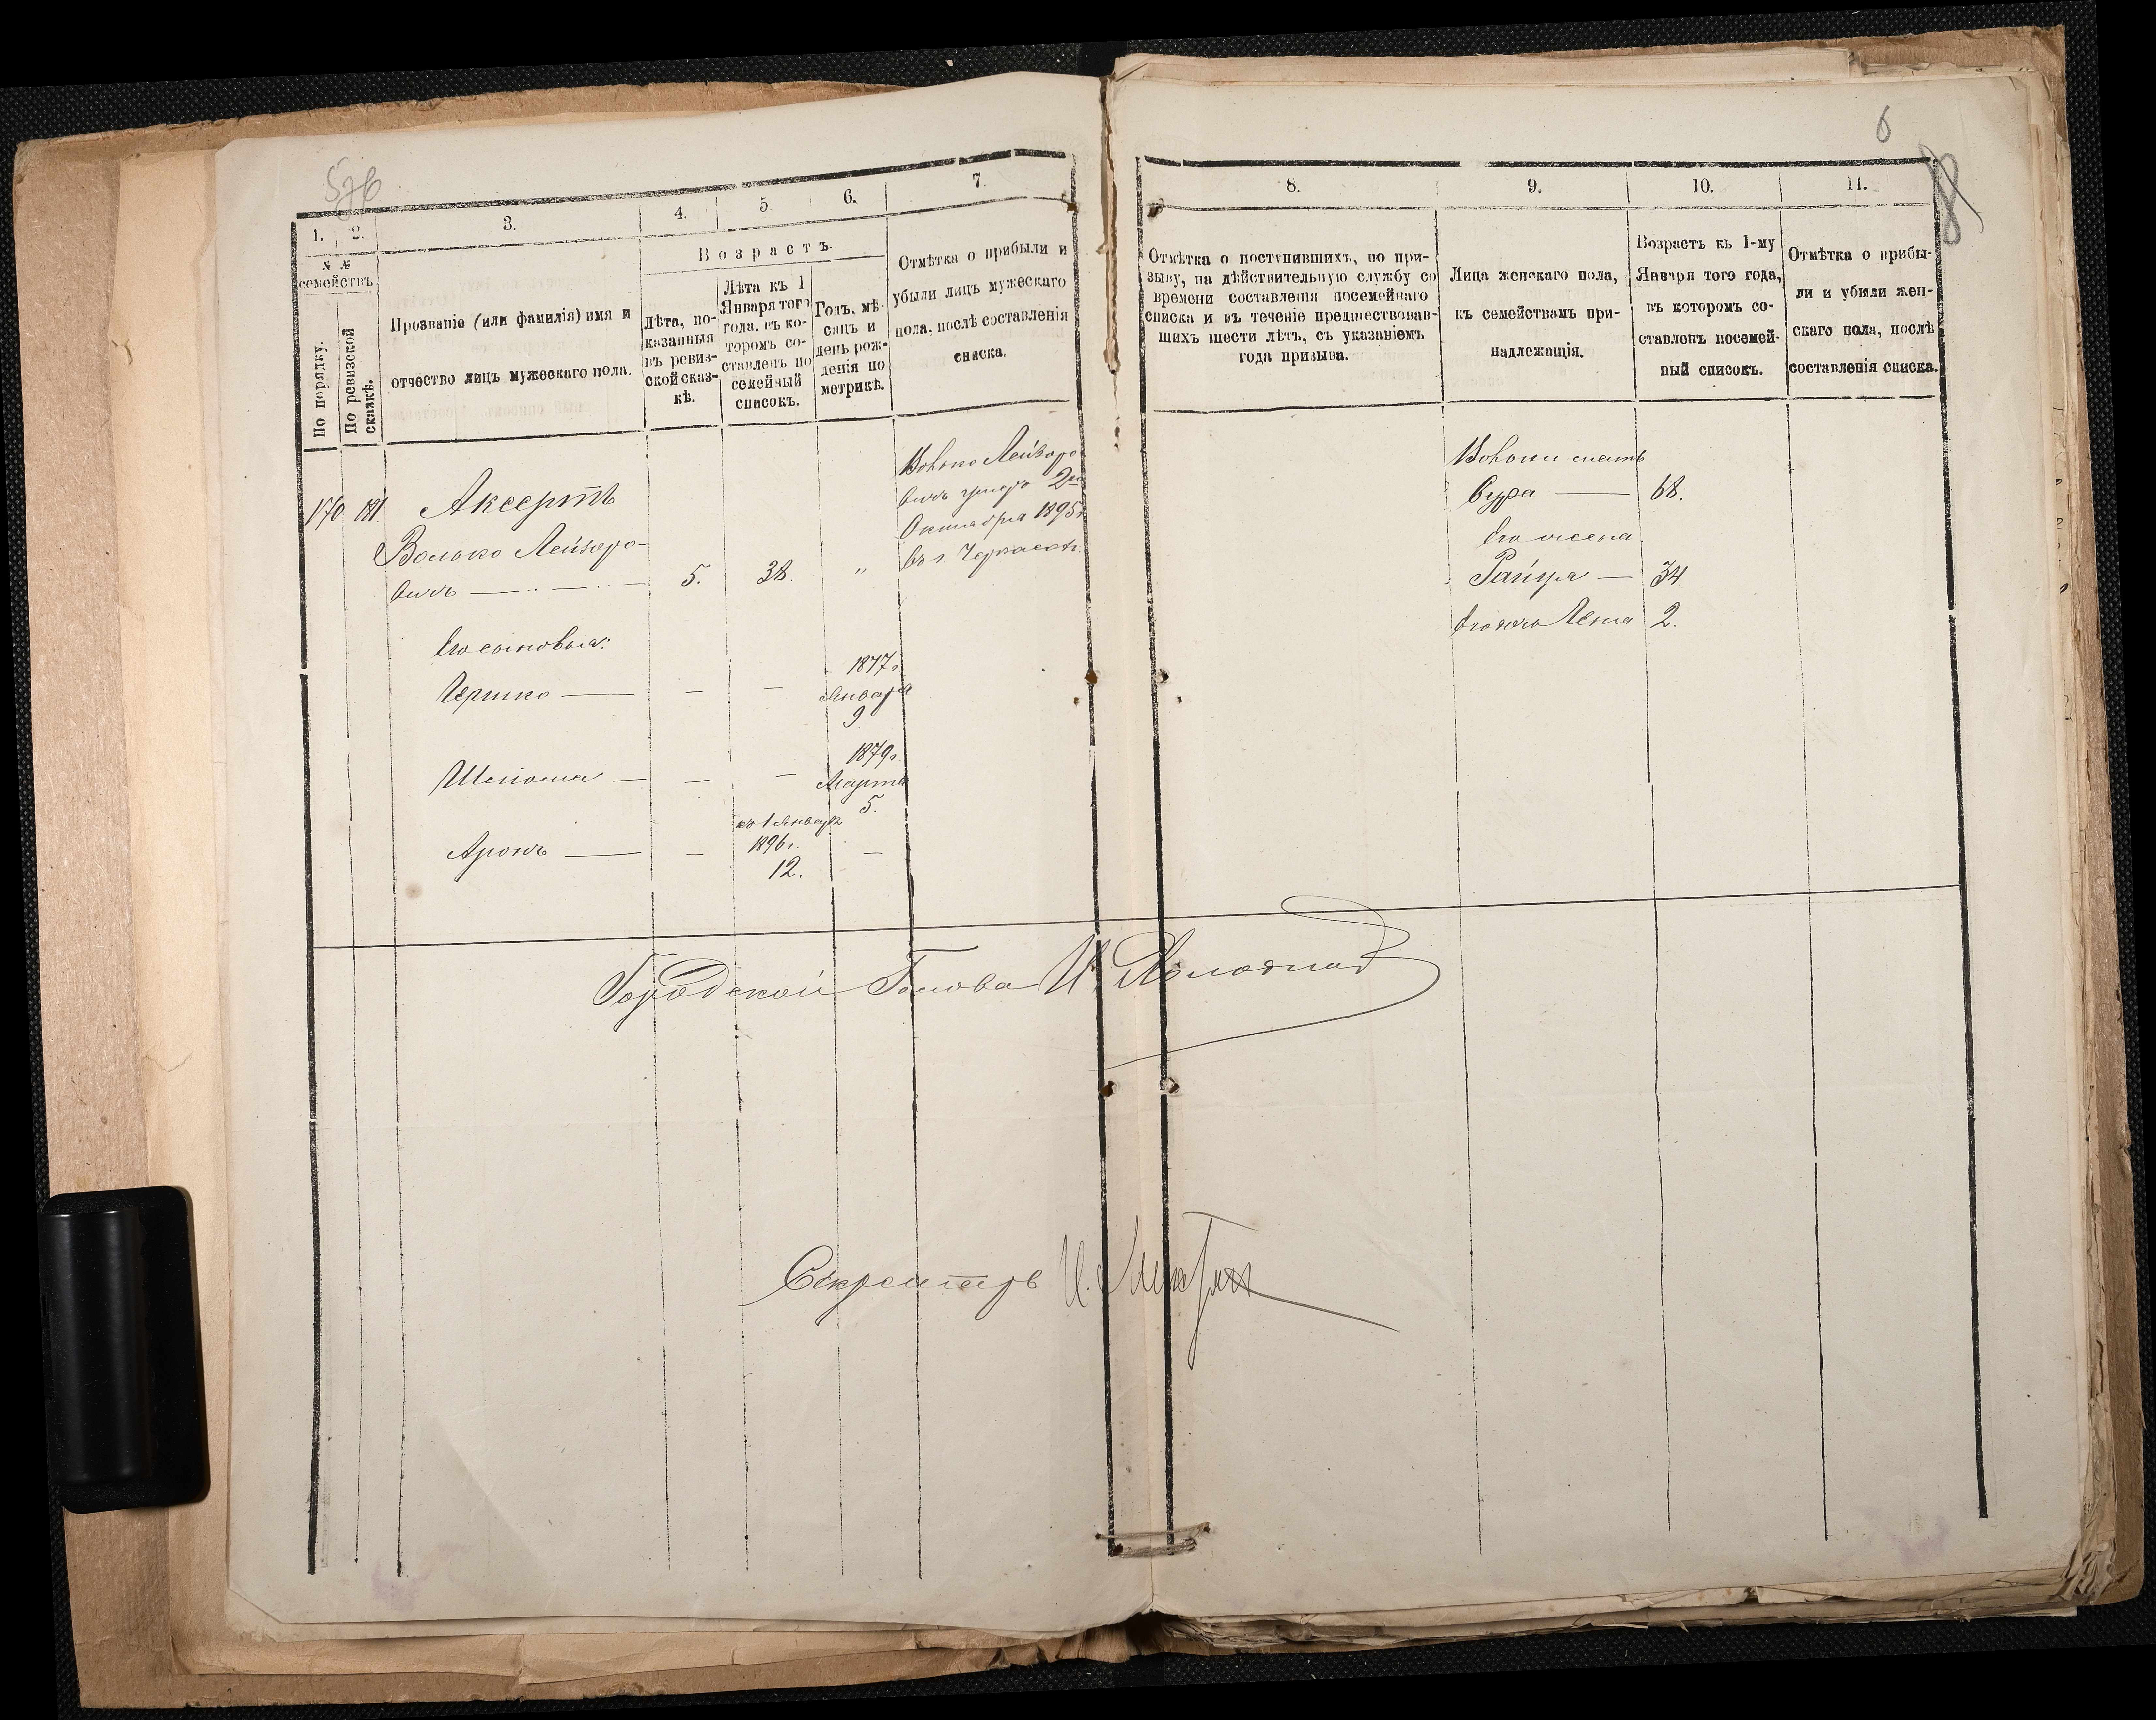 6
1.
2.
3.
4.
5.
6.
7.
№ №
семействъ
По порядку.
По ревизской
сказкѣ.
Прозваніе (или фамилія) имя и
отчество лицъ мужескаго пола.
Возрастъ.
Лѣта, по-
казанныя
въ ревиз-
ской сказ-
кѣ.
Лѣта къ 1
Января того
года, въ ко-
торомъ со-
ставленъ по
семейный
списокъ.
Годъ, мѣ-
сяцъ и
день рож-
денія по
метрикѣ.
Отмѣтка о прибыли и
убыли лицъ мужескаго
пола, послѣ составленія
списка.
8.
9.
10.
11.
Отмѣтка о поступившихъ, по при-
зыву, на дѣйствительную службу со
времени составленія посемейнаго
списка и въ теченіе предшествовав-
шихъ шести лѣтъ, съ указаніемъ
года призыва.
Лица женскаго пола,
къ семействамъ при-
надлежащія.
Возрастъ къ 1-му
Января того года,
въ которомъ со-
ставленъ посемей-
ный списокъ.
Отмѣтка о прибы-
ли и убыли жен-
скаго пола, послѣ
составленія списка.
170 181 Аксертъ
Волько Лейзоро-
вичъ 5. 38. „
Волько Лейзоро-
вичъ умеръ 2го
Октября 1895г.
въ г. Черкассахъ.
Его сыновья:
Гершко — — — 1877г.
Января
9
— — 1879г.
Марта
5.
Аронъ — — къ 1 Января
1896г.
12. —
Вольки мать
Сура — 68.
Его жена
— 34.
Его дочь 2.
Городской Голова
Секретарь